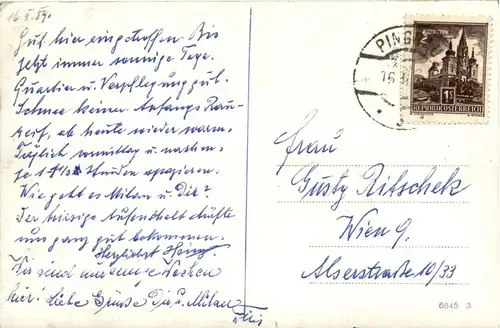 16. X. 59.
Gut hier eingetroffen. Bis
jetzt immer sonnige Tage.
Quartier u. Verpflegung gut.
Schnee keiner. Anfangs Rau-
reif, ab heute wieder warm.
Täglich vormittag u. nachm.
je 1 ½ Stunden spazieren.
Wie geht es Milan u. Dir?
Der hiesige Aufenthalt dürfte
uns ganz gut bekommen.
Herzlichst
Wir sind nur wenige Wochen
hier! Liebe Grüsse Dir u. Milan
PING
16.
MARIAZELL
1S
REPUBLIK ÖSTERREICH
Frau
Gusty Ritschek
Wien 9.
Alserstraße 10/33
6345 3